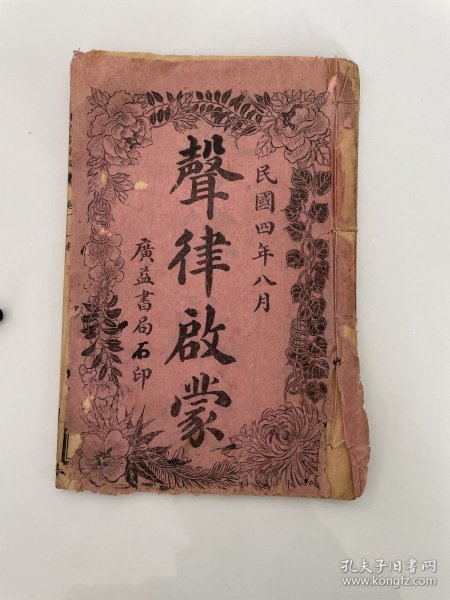 民國四年八月
聲律啟蒙
廣益書局石印
孔夫子旧书网
www.kongfz.com